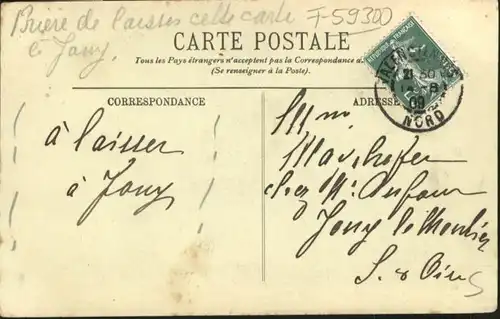 Prière de laisser cette carte
à Jouy
F-59300
CARTE POSTALE
Tous les Pays étrangers n'acceptent pas la Correspondance a
(Se renseigner à la Poste).
CORRESPONDANCE
ADRESSE
à laisser
à Jouy
VALENCIENNES
21 50
09
NORD
chez Mr Dufour
Jouy le Moutier
S. & Oise